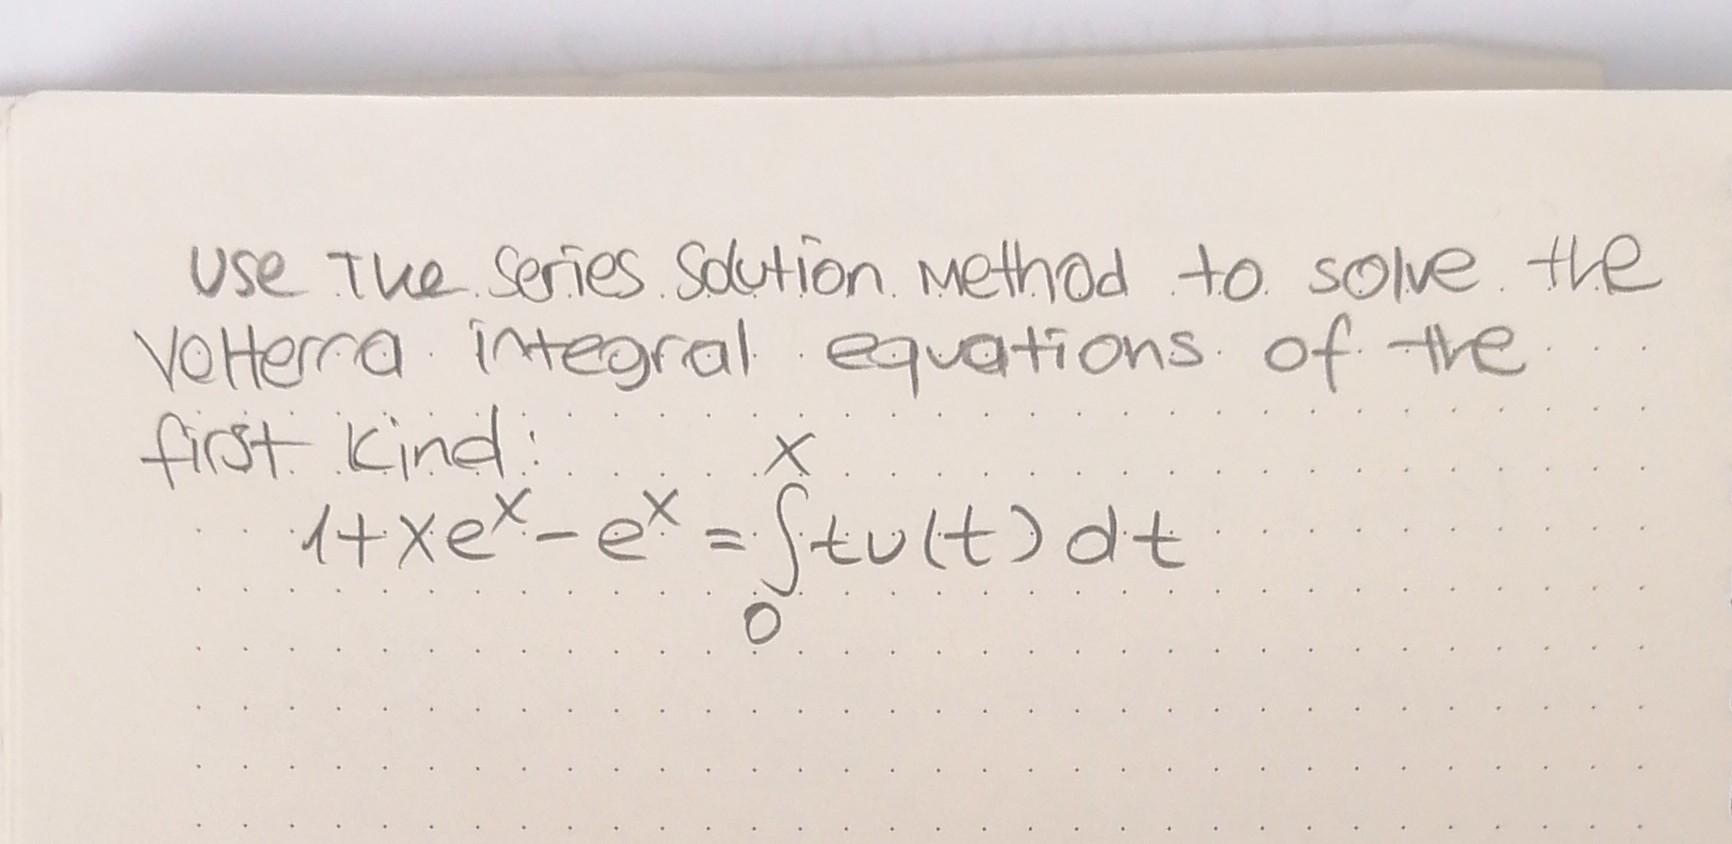 Use The Series Solution Method to solve the
Volterra integral equations of the
first kind:
1+xeˣ-eˣ = ∫₀ˣ tu(t) dt